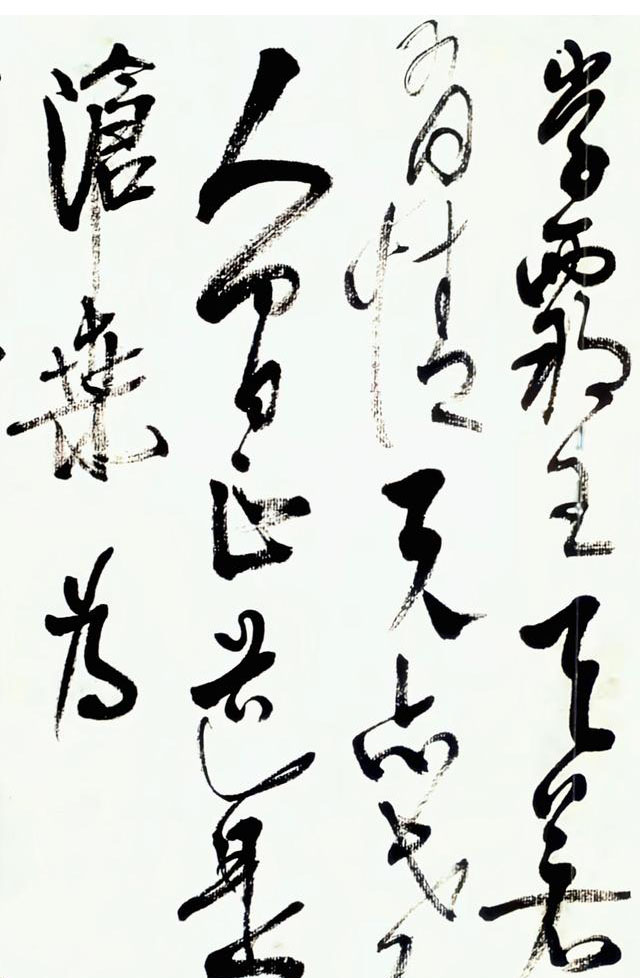 学霸王天若
有情天亦老
人间正道是
滄桑为